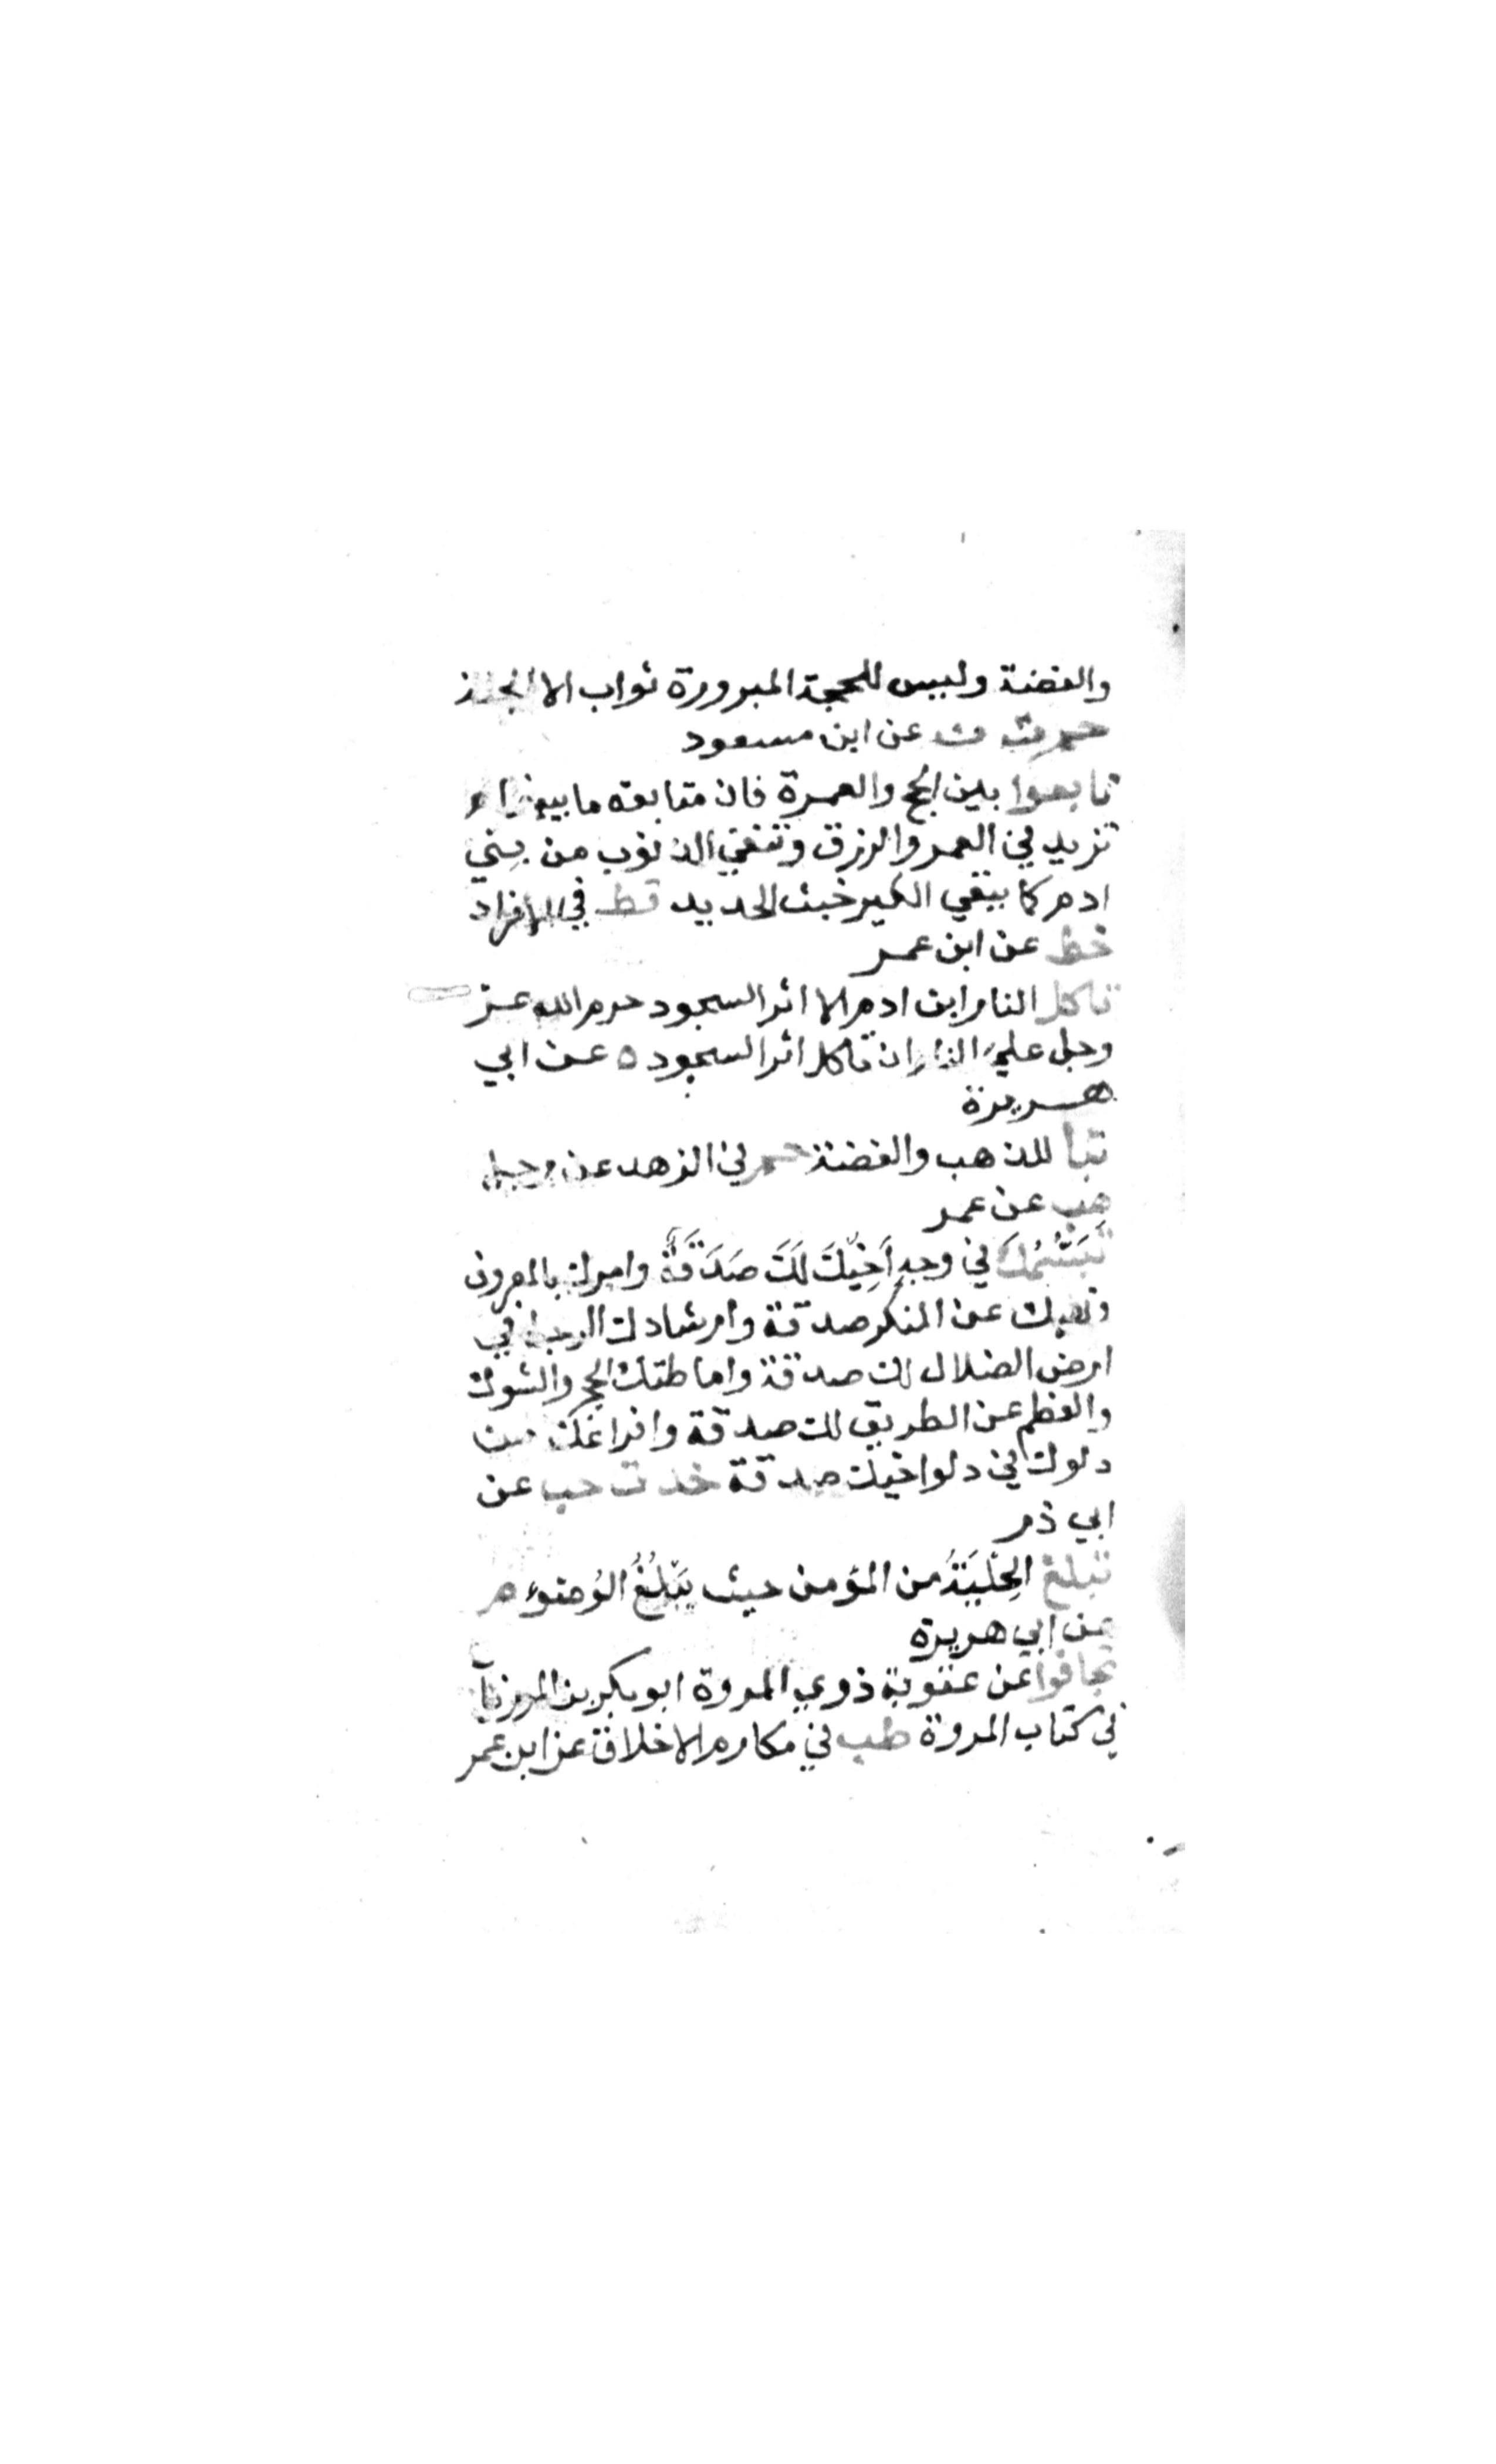 والفضة وليس للحجة المبرورة ثواب الا الجنة
حم ت ن عن ابن مسعود
تابعوا بين الحج والعمرة فان متابعة ما بينهما
تزيد في العمر والرزق وتنفي الذنوب من بني
ادم كما ينفي الكير خبث الحديد قط في الافراد
خط عن ابن عمر
تاكل النار ابن ادم الا اثر السجود حرم الله عز
وجل علي النار ان تاكل اثر السجود ه عن ابي
هريرة
تبا للذهب والفضة حم في الزهد عن رجل
هب عن عمر
تَبَسُّمُكَ في وجهِ اَخِيْكَ لَكَ صَدَقَةٌ وامرك بالمعروف
ونهيك عن المنكر صدقة وارشادك الرجل في
ارض الضلال لك صدقة واماطتك الحجر والشوك
والعظم عن الطريق لك صدقة وافراغك من
دلوك في دلو اخيك صدقة خد ت حب عن
ابي ذر
تبلغ الحِلْيَةُ من المؤمن حيث يَبْلُغُ الوُضوء م
عن ابي هريرة
تجافوا عن عقوبة ذوي المروة ابو بكر بن المرزبان
في كتاب المروة طب في مكارم الاخلاق عن ابن عمر